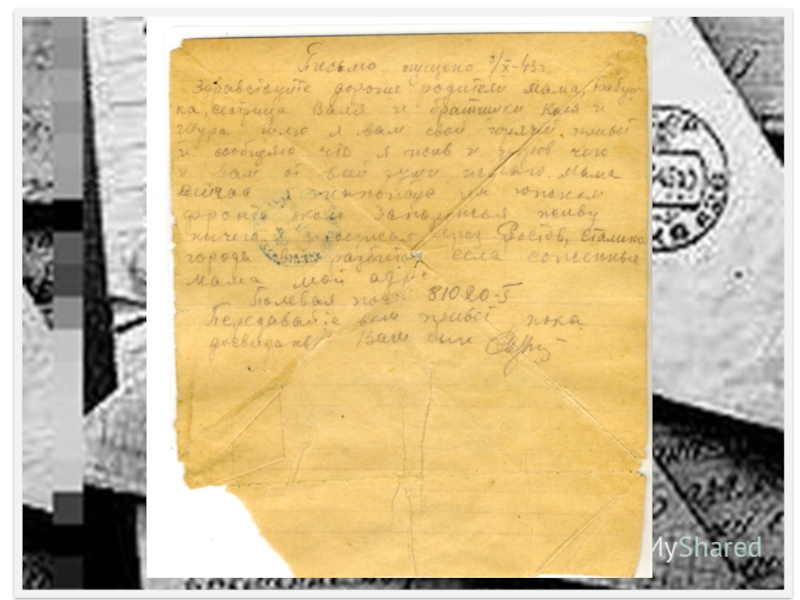 Письмо пущено 3/X-43г.
Здравствуйте дорогие родители Мама, Бабуш
ка, сестрица Валя и братишки Коля и
Шура шлю я вам свой горячий привет
и сообщаю что я жив и здоров чего
и вам от всей души желаю. Мама
сейчас я на южном
фронте Запорожья живу
ничего через Ростов, Сталино
города разбиты села сожженные
Мама мой адрес
Полевая почта 81020-Г
Передавайте всем привет пока
досвидания Ваш сын
MyShared